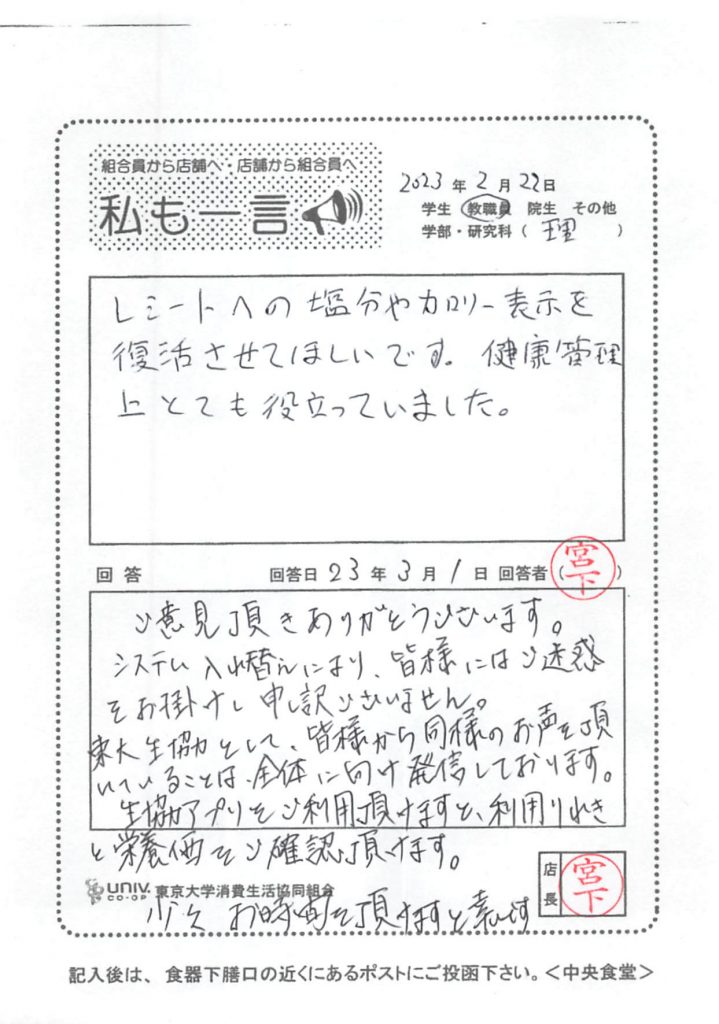 組合員から店舗へ・店舗から組合員へ
私も一言
2023年2月22日
学生 教職員 院生 その他
学部・研究科（ 理 ）
レシートへの塩分やカロリー表示を
復活させてほしいです。健康管理
上とても役立っていました。
回答 回答日 23年3月1日 回答者（宮下）
ご意見頂きありがとうございます。
システム入れ替えにより、皆様にはご迷惑
をお掛けし申し訳ございません。
東大生協として、皆様から同様のお声を頂
いていることは、全体に向け発信しております。
生協アプリをご利用頂けますと、利用りれき
と栄養価をご確認頂けます。
UNIV. CO-OP 東京大学消費生活協同組合
店長 宮下
少々お時間を頂けますと幸いです
記入後は、食器下膳口の近くにあるポストにご投函下さい。＜中央食堂＞